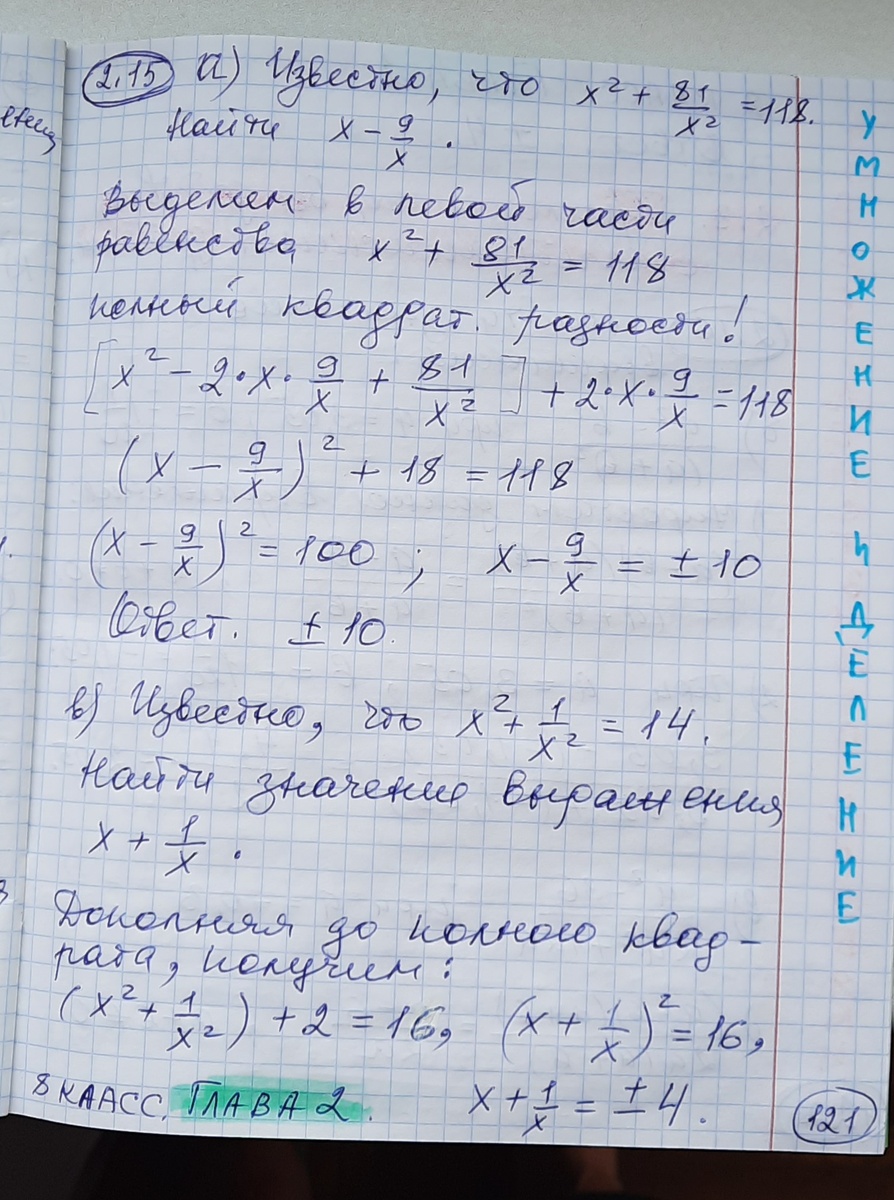 2.15 а) Известно, что x² + 81/x² = 118.
Найти x − 9/x.
Выделим в левой части
равенства x² + 81/x² = 118
полный квадрат. разности!
[x² − 2·x·9/x + 81/x²] + 2·x·9/x = 118
(x − 9/x)² + 18 = 118
(x − 9/x)² = 100; x − 9/x = ± 10
Ответ. ± 10.
в) Известно, что x² + 1/x² = 14.
Найти значение выражения
x + 1/x.
Дополняя до полного квад-
рата, получим:
(x² + 1/x²) + 2 = 16, (x + 1/x)² = 16,
x + 1/x = ± 4.
8 КЛАСС. ГЛАВА 2.
121
УМНОЖЕНИЕ И ДЕЛЕНИЕ